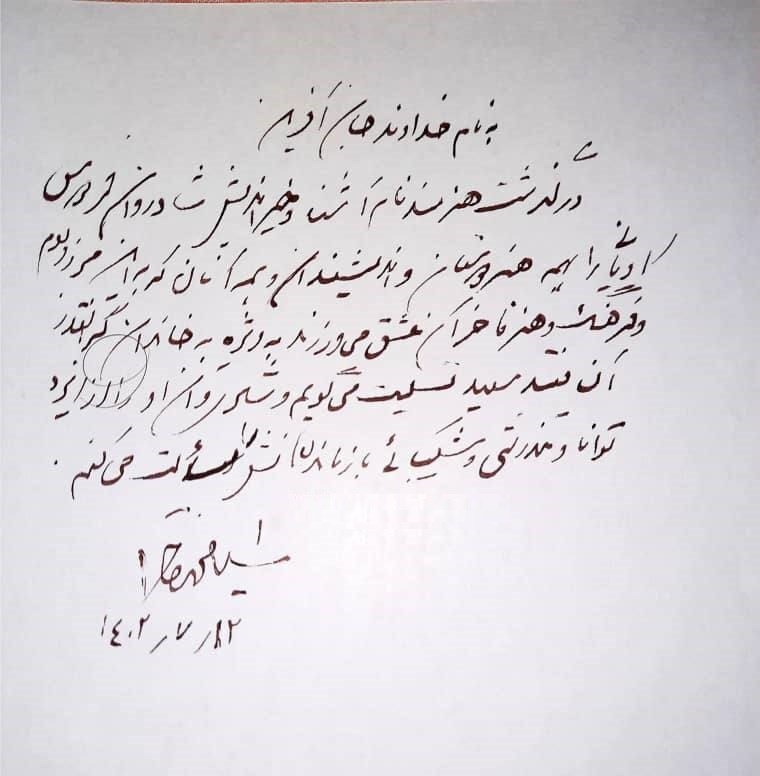 به نام خداوند جان آفرین
درگذشت هنرمند نام آشنا و خیراندیش شادروان فردوس
کاویانی را به همه هنردوستان و اندیشمندان و به همه آنان که به ایران مرزوبوم
و فرهنگ و هنر فاخر آن عشق می‌ورزند به ویژه به خاندان گرانقدر
آن فقید سعید تسلیت می‌گویم و شادی روان او را از ایزد
توانا و تندرستی و شکیبائی بازماندگانش را مسألت می‌کنم.
۱۴۰۲/۷/۱۲